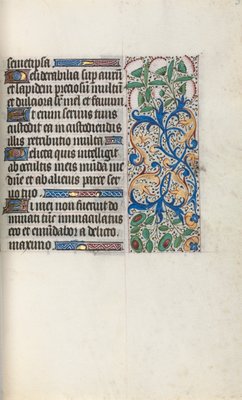 semetipsa
Desiderabilia sup aurū
et lapidem preciosū multū
et dulciora sr mel et fauum
Et enim seruus tuus
custodit ea in custodiendis
illis retributio multa
Delicta quis intelligit
ab occultis meis mūda me
dn̄e et ab alienis parce ser
uo tuo
Si mei non fuerit do
minati tūc immaculatus
ero et emūdabor a delicto
maximo